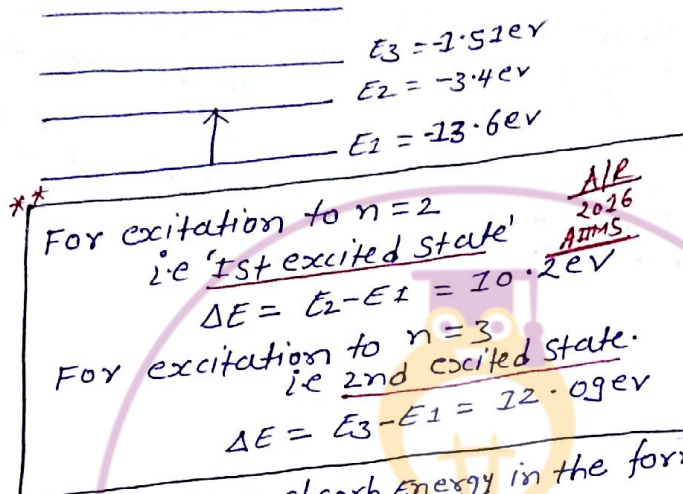 E3 = -1.51ev
E2 = -3.4ev
E1 = -13.6ev
**
A/R
2016
AIIMS
For exitation to n=2
i.e 'Ist excited state'
ΔE = E2-E1 = 10.2ev
For excitation to n=3
ie 2nd excited state.
ΔE = E3-E1 = 12.09ev
absorb Energy in the for